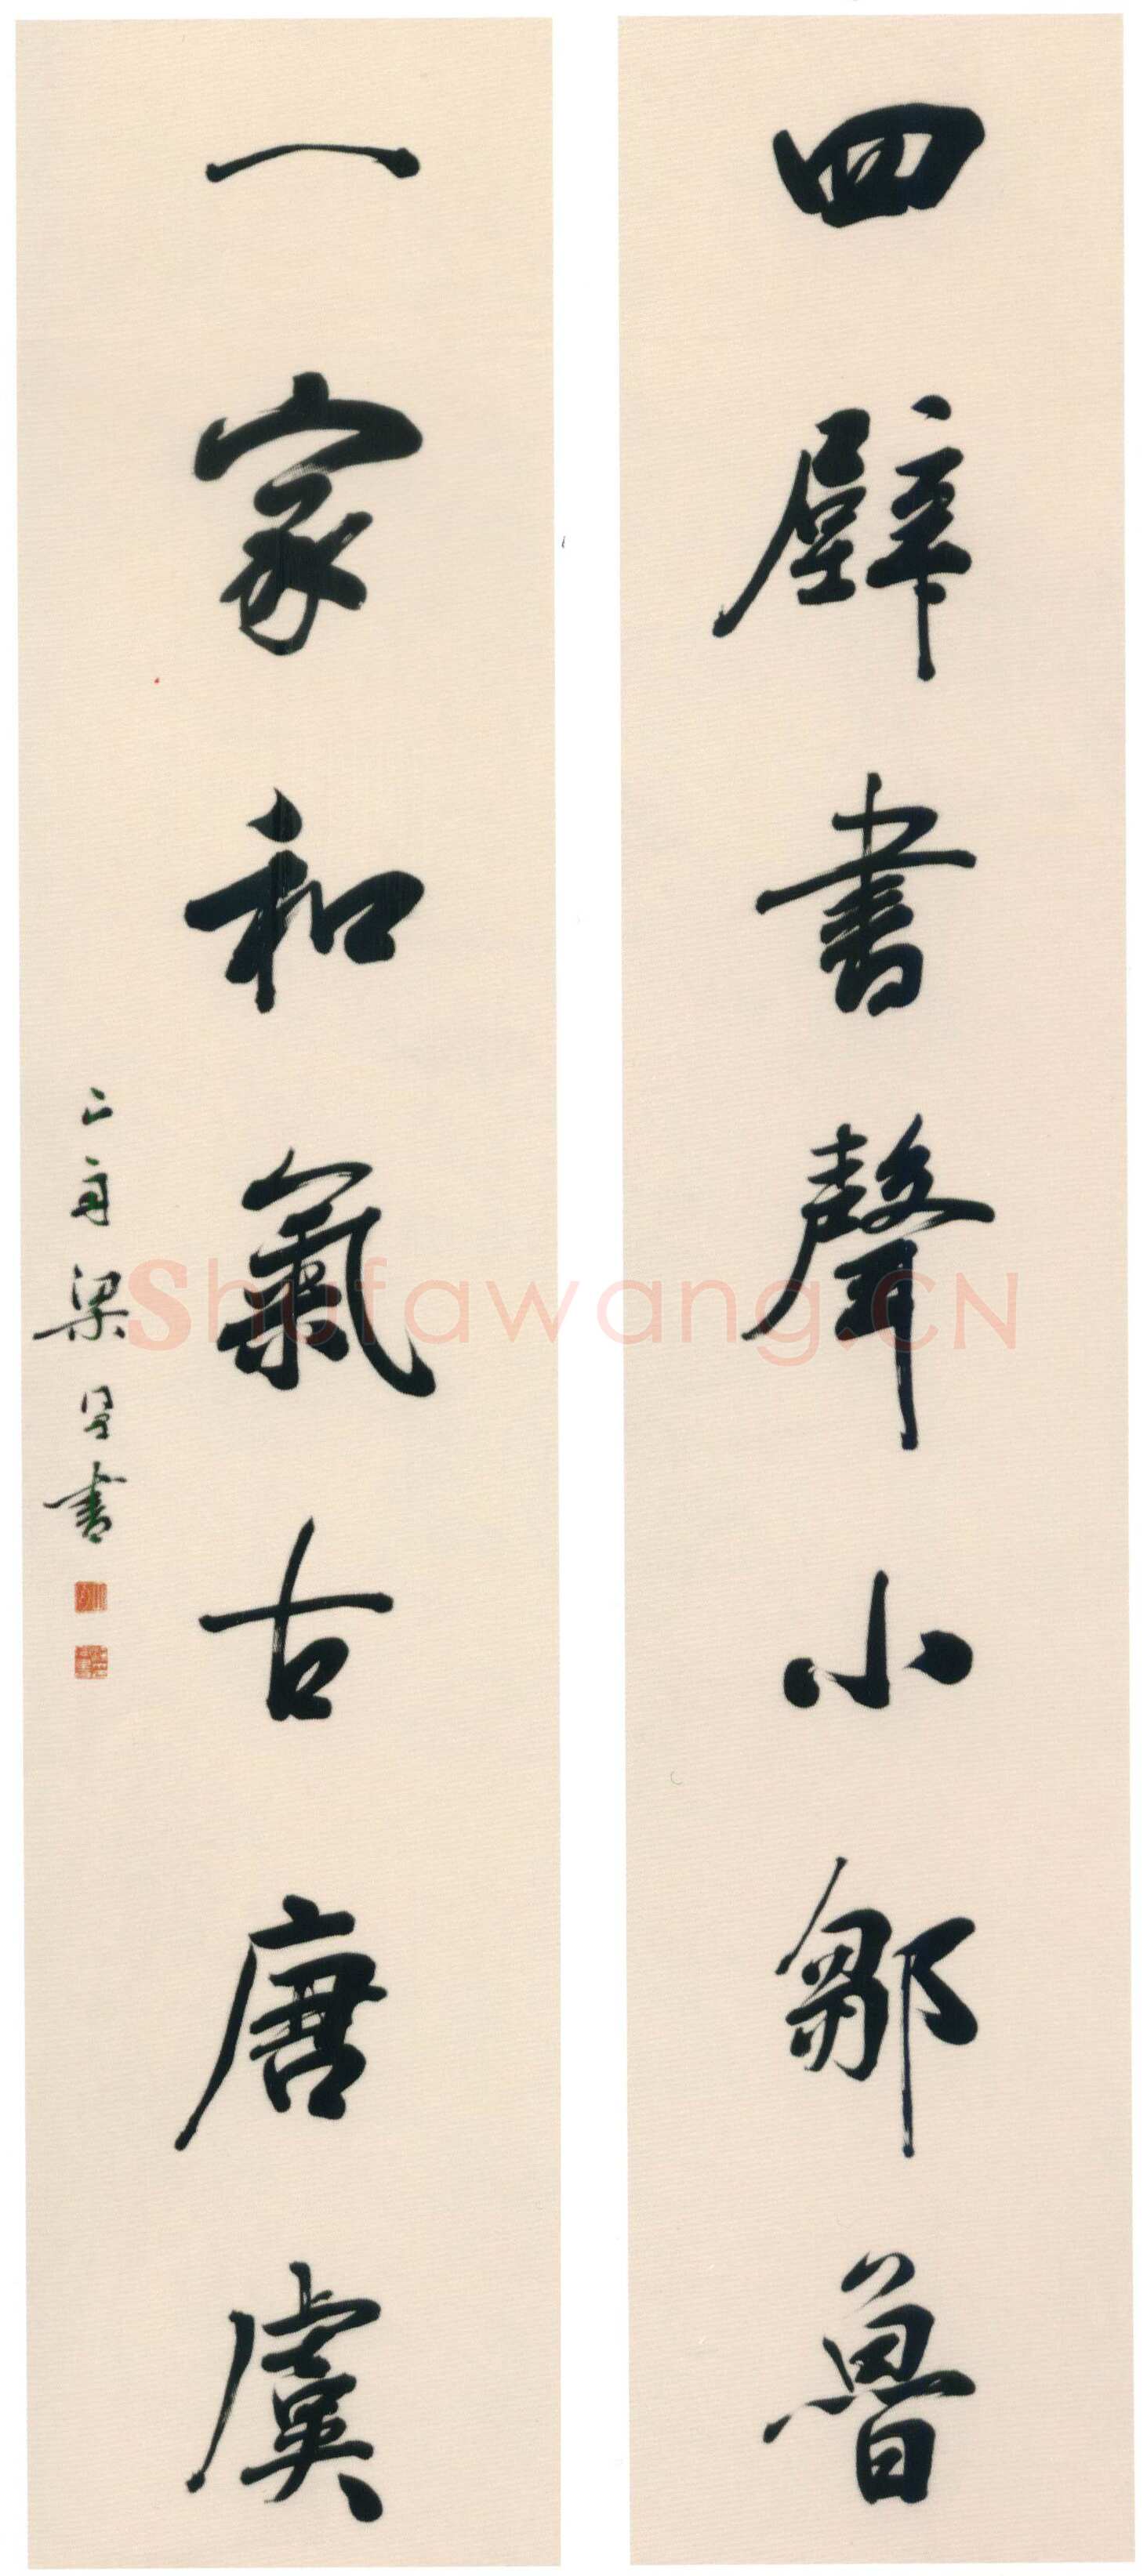 四壁書聲小鄒魯
一家和氣古唐虞
山舟梁同書
Shufawang.CN